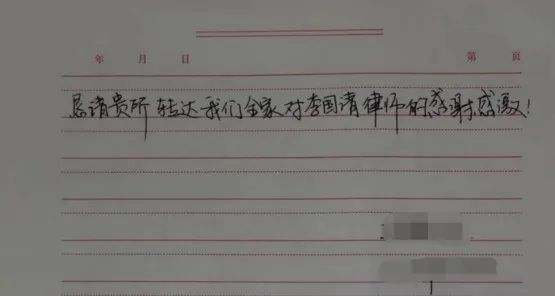 年 月 日 第 页
恳请贵所转达我们全家对李国清律师的感谢感激!